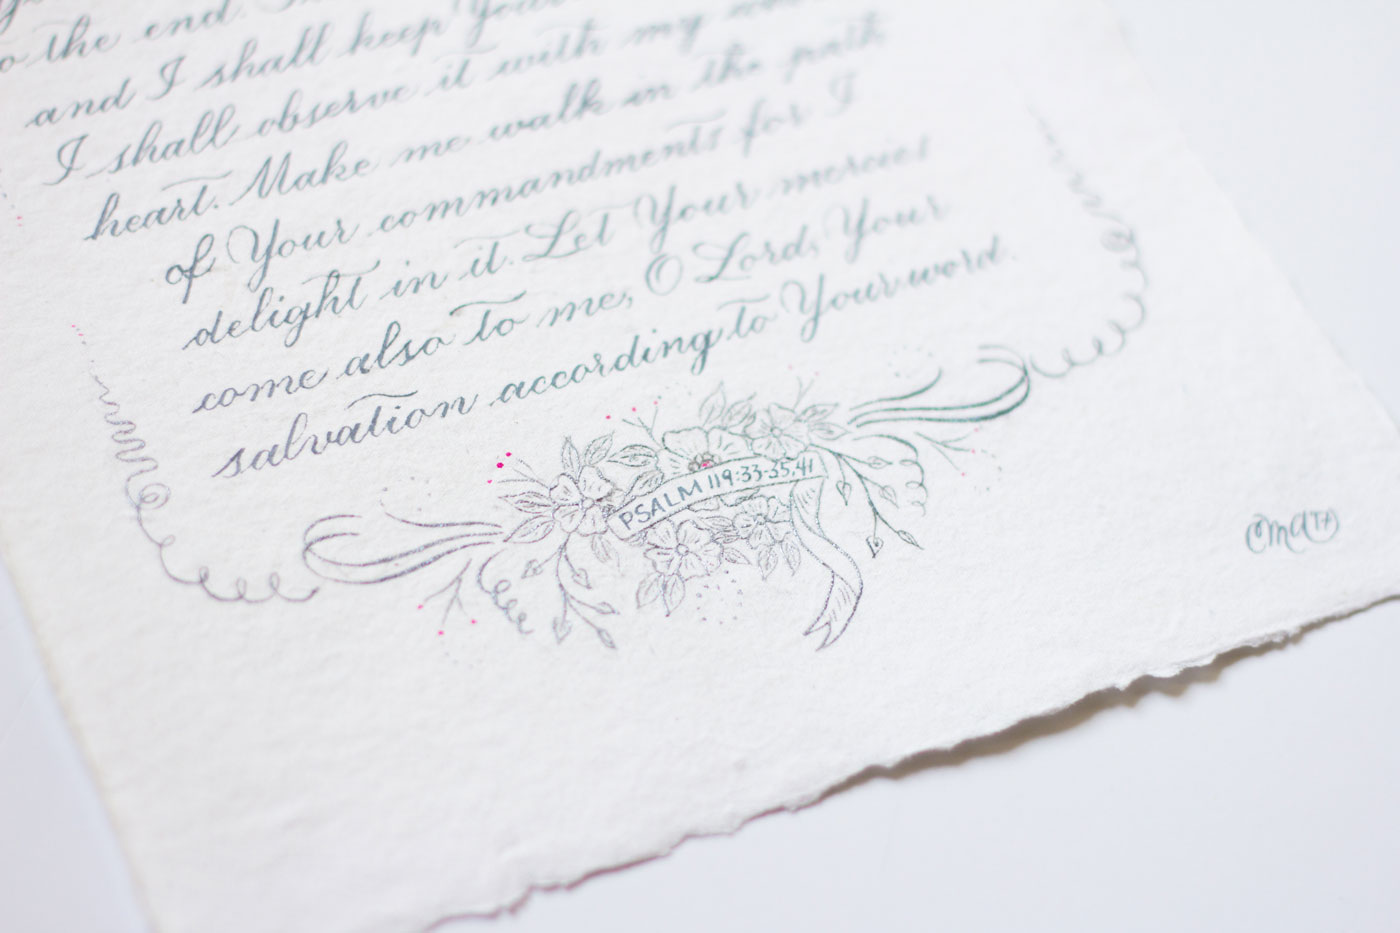 to the end.
and I shall keep Your
I shall observe it with my
heart. Make me walk in the path
of Your commandments for I
delight in it. Let Your mercies
come also to me, O Lord, Your
salvation according to Your word.
PSALM 119:33-35,41